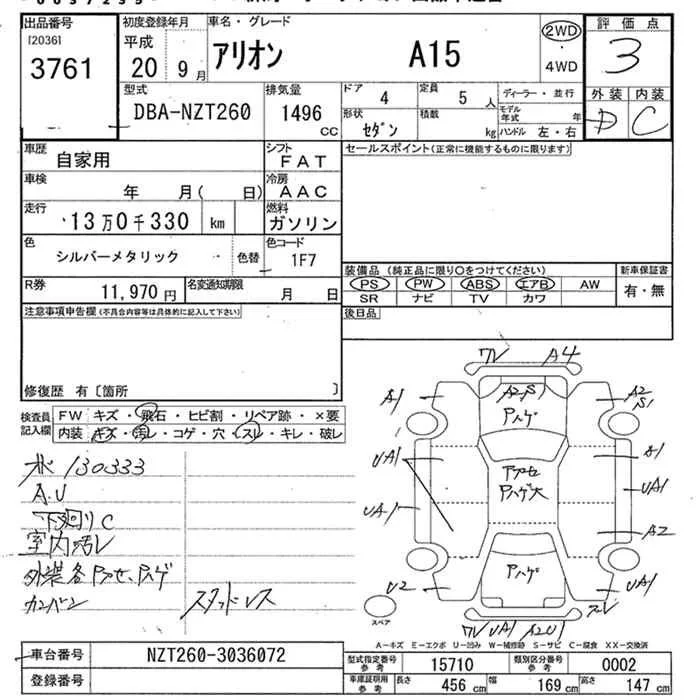 出品番号 初度登録年月 車名・グレード 評価点
[2036]
3761 平成 20 9月 アリオン A15 2WD・4WD 3
型式 排気量 ドア 定員 ディーラー・並行 外装 内装
DBA-NZT260 1496 CC 4 5人 モデル年式 年 D C
形状 積載
セダン kg ハンドル 左・右
車歴 シフト セールスポイント(正常に機能するものに限ります)
自家用 FAT
車検 冷房
年 月( 日) AAC
走行 燃料
13万0千330 km ガソリン
色 色コード
シルバーメタリック 色替 1F7
装備品(純正品に限り○をつけてください) 新車保証書
PS PW ABS エアB AW 有・無
SR ナビ TV カワ
R券 名変通知期限
11,970円 月 日
後日品
注意事項申告欄(不具合内容等は具体的に記入して下さい)
修復歴 有〔箇所 〕
検査員記入欄 FW キズ・飛石・ヒビ割・リペア跡・×要
内装 キズ・汚レ・コゲ・穴・スレ・キレ・破レ
130333
A.U
下廻りC
室内汚レ
外装各アセ、Pハゲ
カンバン スタッドレス
ワレ A4
A1 A2・S1 A2 S1
Pハゲ
UA1 S1
Pアセ
Pハゲ大
UA1 UA1
A2
Pハゲ
U2 UA1
スペア ワレ UA1 A2U1
A-キズ E-エクボ U-凹み W-補修跡 S-サビ C-腐食 XX-交換済
車台番号 NZT260-3036072 型式指定番号参考 15710 類別区分番号参考 0002
登録番号 車庫証明用参考 長さ 456cm 幅 169cm 高さ 147cm